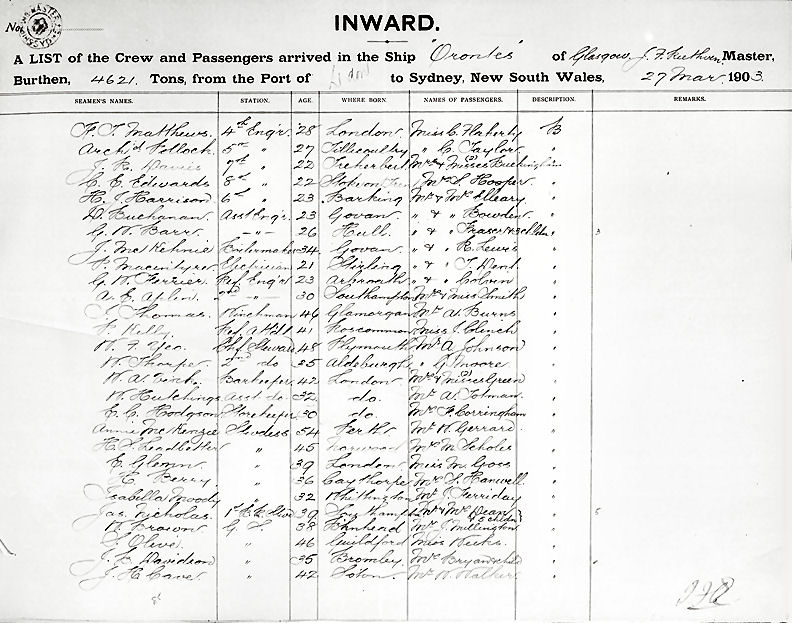 INWARD.
No.
A LIST of the Crew and Passengers arrived in the Ship "Orontes" of Glasgow, J. F. Ruthven, Master,
Burthen, 4621. Tons, from the Port of to Sydney, New South Wales, 27 Mar. 1903.
SEAMEN'S NAMES. STATION. AGE. WHERE BORN. NAMES OF PASSENGERS. DESCRIPTION. REMARKS.
F. T. Matthews. 4th Eng'r. 28 London. Miss C. Flaherty B
Arch'd Pollock. 5th " 27 Tillicoultry " C. Taylor "
J. R. Davies 7th " 22 Treherbert Mrs & Misses Buckingham "
C. E. Edwards 8th " 22 Mrs S. Hooper "
H. J. Harrison 6th " 23 Barking Mr & Mrs "
D. Buchanan. Asst Eng'r. 23 Govan. " & " Bowden. "
G. W. Barr. -"- 26 Hull. " & " Fraser & 3 children "
J. McKechnie Boilermaker 34 Govan. " & " R. Lewis "
P. Macintyre. Electrician 21 Stirling " & " T. Dent. "
G. W. Ferrier. Ref. Eng'r 23 Arbroath " & " "
A. E. 2nd -"- 30 Southampton Mrs & Miss Smith "
J. Thomas. Winchman 46 Glamorgan Mr W. Burns "
P. Kelly. Ref. Att'd't 41 Roscommon Miss J. Clench "
W. F. Yeo. Chf. Steward 48 Plymouth Mr A. Johnson "
W. Thorpe. 2nd do 35 Aldeburgh " G. Moore. "
W. A. Barkeeper 42 London Mrs & Misses (2) Green "
W. Hutchings Asst do 32 do. Mr A. Totman. "
C. C. Hodgson Storekeeper 30 do Mr F. Corringham "
Annie McKenzie Stewdess 54 Perth. Mr W. Gerrard. "
H. S. Leadbetter " 45 Mr M. Scholes "
E. Glenn. " 39 London. Miss M. Goss "
Berry. " 36 Caythorpe Mr S. Hanwell "
Isabella Moody " 32 Whittington Mr J. Ferriday "
Jas. Nicholas. 39 Southampton Mr & Mrs Dean & 5 childn "
W. Brown G. S. 38 Mr J. Millington "
S. Olive. " 46 Guildford Miss Weeks. "
J. B. Davidson " 35 Bromley. Mrs Bryan & child "
J. H. Cave. " 42 Soton. Mr W. Walker. "